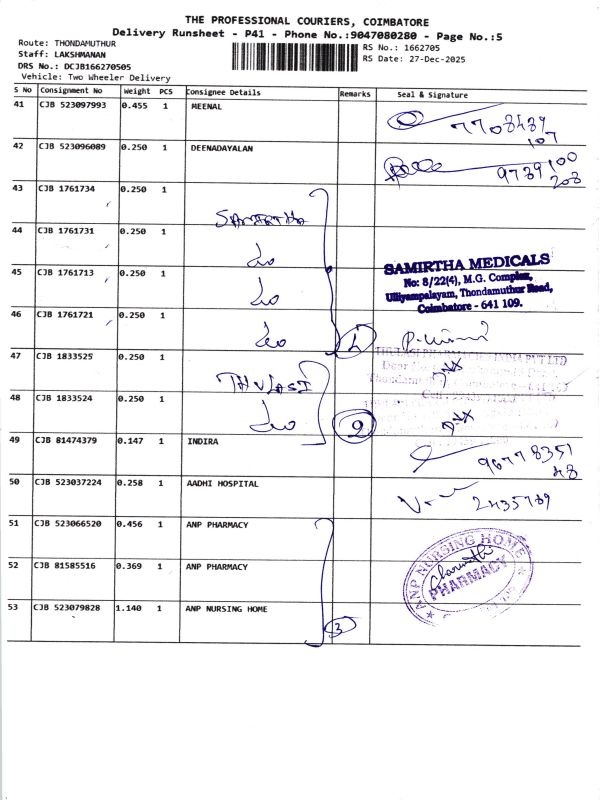 THE PROFESSIONAL COURIERS, COIMBATORE
Delivery Runsheet - P41 - Phone No.:9047080280 - Page No.:5
Route: THONDAMUTHUR
Staff: LAKSHMANAN
DRS No.: DCJB166270505
Vehicle: Two Wheeler Delivery
RS No.: 1662705
RS Date: 27-Dec-2025
S No Consignment No Weight PCS Consignee Details Remarks Seal & Signature
41 CJB 523097993 0.455 1 MEENAL
42 CJB 523096089 0.250 1 DEENADAYALAN 9789 100
43 CJB 1761734 0.250 1
SAMIRTHA
44 CJB 1761731 0.250 1
45 CJB 1761713 0.250 1
SAMIRTHA MEDICALS
No: 8/22(4), M.G. Complex,
Ulliyampalayam, Thondamuthur Road,
Coimbatore - 641 109.
46 CJB 1761721 0.250 1
47 CJB 1833525 0.250 1
THULASI PHARMACIES INDIA PVT LTD
THULASI
48 CJB 1833524 0.250 1 2
49 CJB 81474379 0.147 1 INDIRA 96778351
48
50 CJB 523037224 0.258 1 AADHI HOSPITAL 2435789
51 CJB 523066520 0.456 1 ANP PHARMACY
52 CJB 81585516 0.369 1 ANP PHARMACY
ANP NURSING HOME
PHARMACY
53 CJB 523079828 1.140 1 ANP NURSING HOME 3